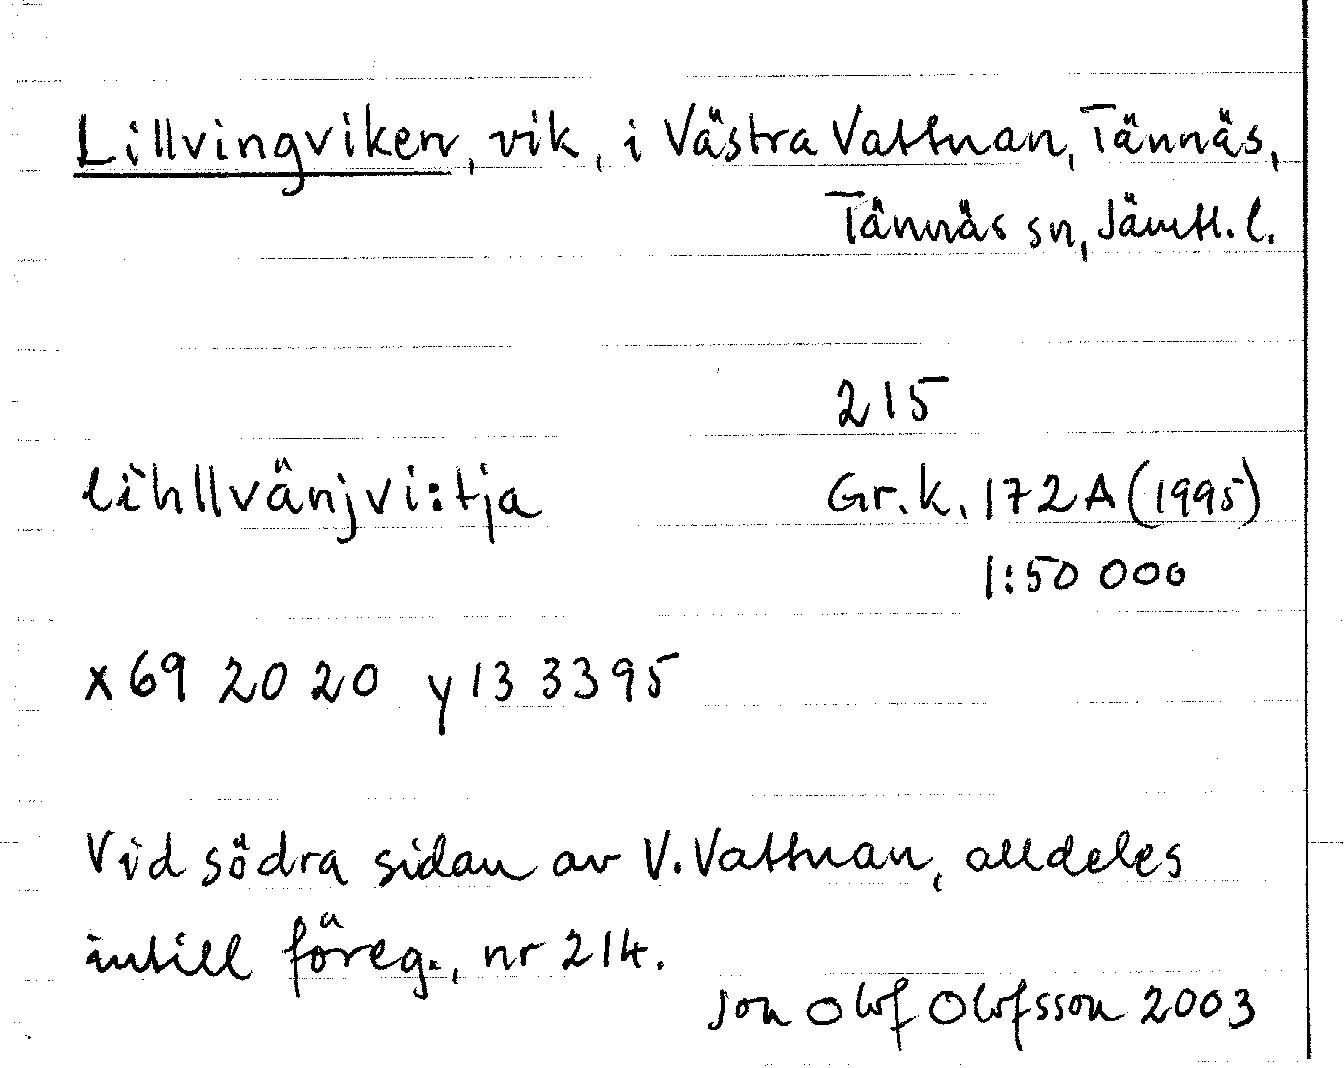 Lillvingviken, vik, i Västra Vattnan, Tännäs,
Tännäs sn, Jämtl. l.
215
lihllvänjvi:tja Gr.k. 172A (1995)
1:50 000
x 69 20 20 y 13 33 95
Vid södra sidan av V. Vattnan, alldeles
intill föreg., nr 214.
Jon Olof Olofsson 2003